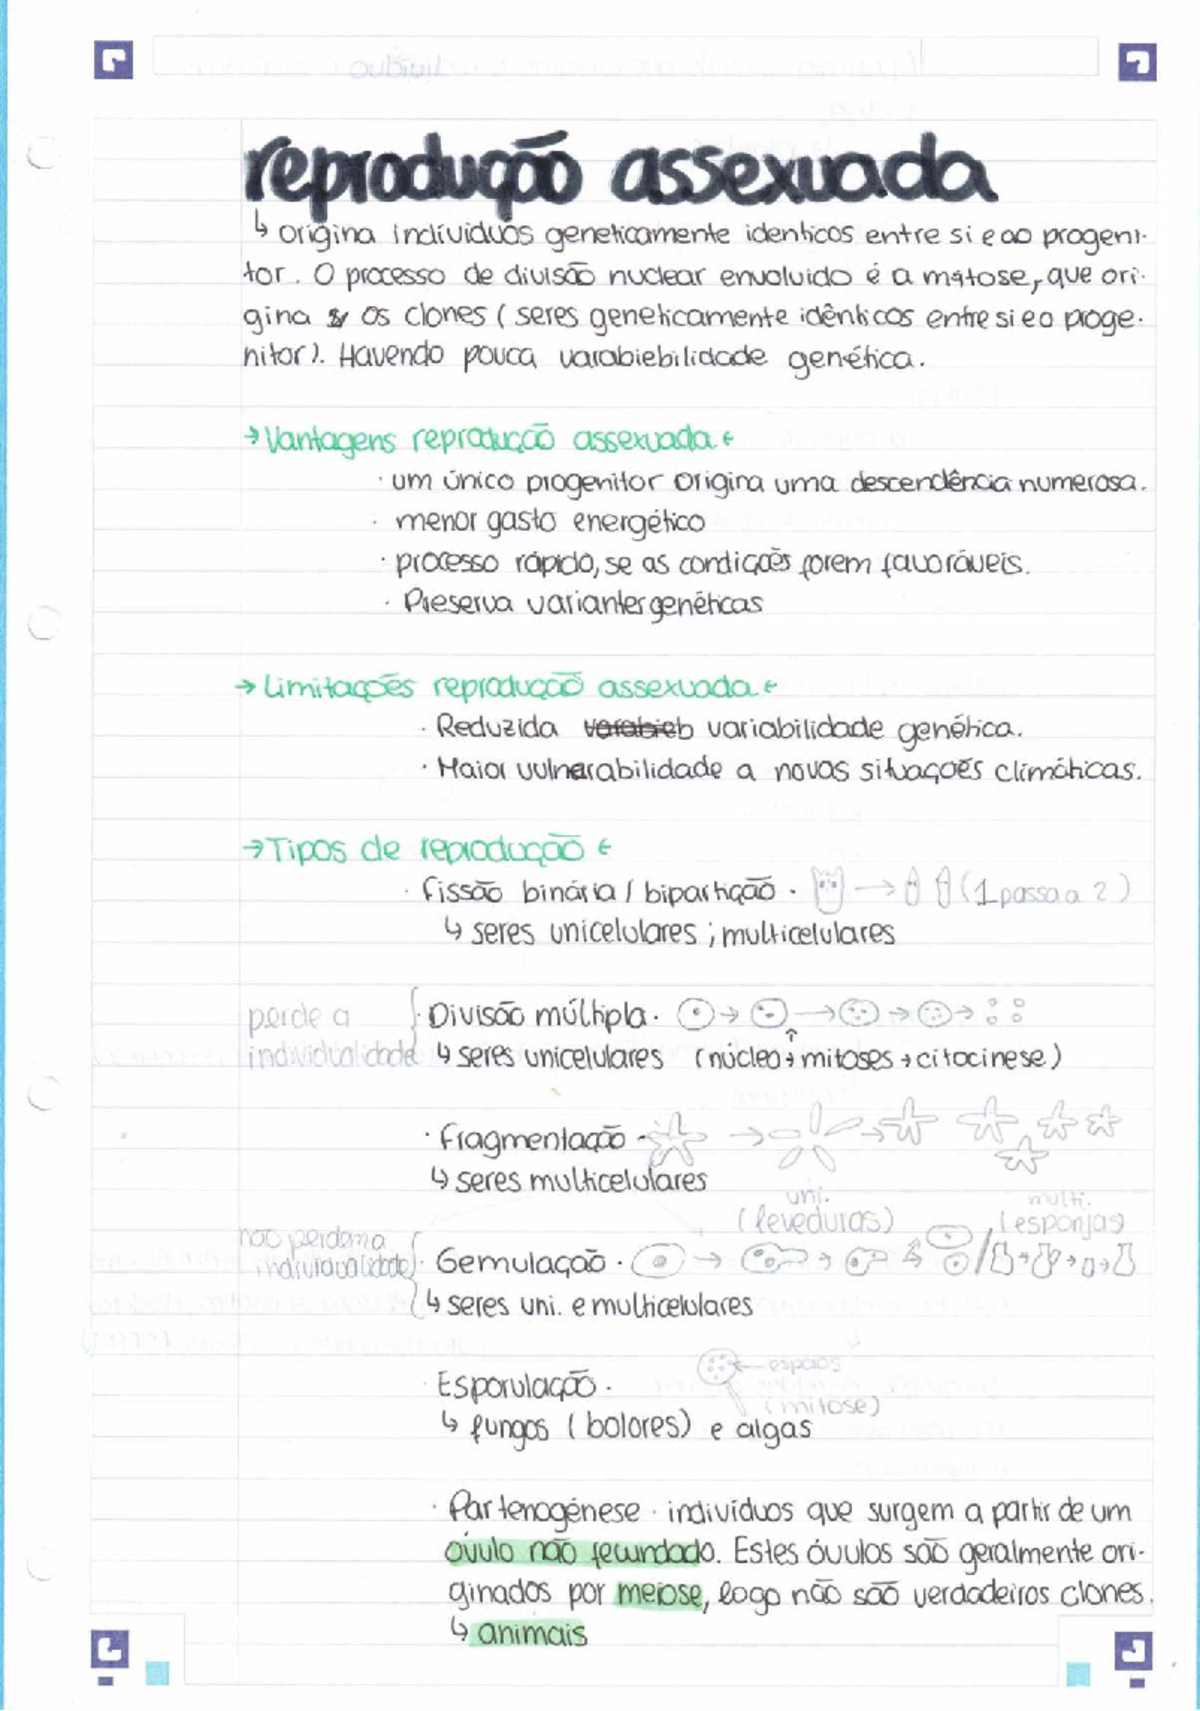 reprodução assexuada
↳ origina indivíduos geneticamente identicos entre si e ao progeni-
tor. O processo de divisão nuclear envolvido é a mitose, que ori-
gina os clones (seres geneticamente idênticos entre si e o proge-
nitor). Havendo pouca varabiebilidade genética.
→ Vantagens reprodução assexuada ←
· um único progenitor origina uma descendência numerosa.
· menor gasto energético
· processo rápido, se as condições forem favoráveis.
· Preserva variantes genéticas
→ Limitações reprodução assexuada ←
· Reduzida varabieb variabilidade genética.
· Maior vulnerabilidade a novas situações climáticas.
→ Tipos de reprodução ←
· Fissão binária / bipartição · → (1 passa a 2)
↳ seres unicelulares ; multicelulares
perde a
individualidade
· Divisão múltipla · → → → →
↳ seres unicelulares (núcleo → mitoses → citocinese)
· Fragmentação · → →
↳ seres multicelulares
uni.
(leveduras)
multi.
(esponjas)
não perde a
individualidade
· Gemulação · → → → / → → →
↳ seres uni. e multicelulares
· Esporulação ·
← esporos
(mitose)
↳ fungos (bolores) e algas
· Partenogénese · indivíduos que surgem a partir de um
óvulo não fecundado. Estes óvulos são geralmente ori-
ginados por meiose, logo não são verdadeiros clones.
↳ animais